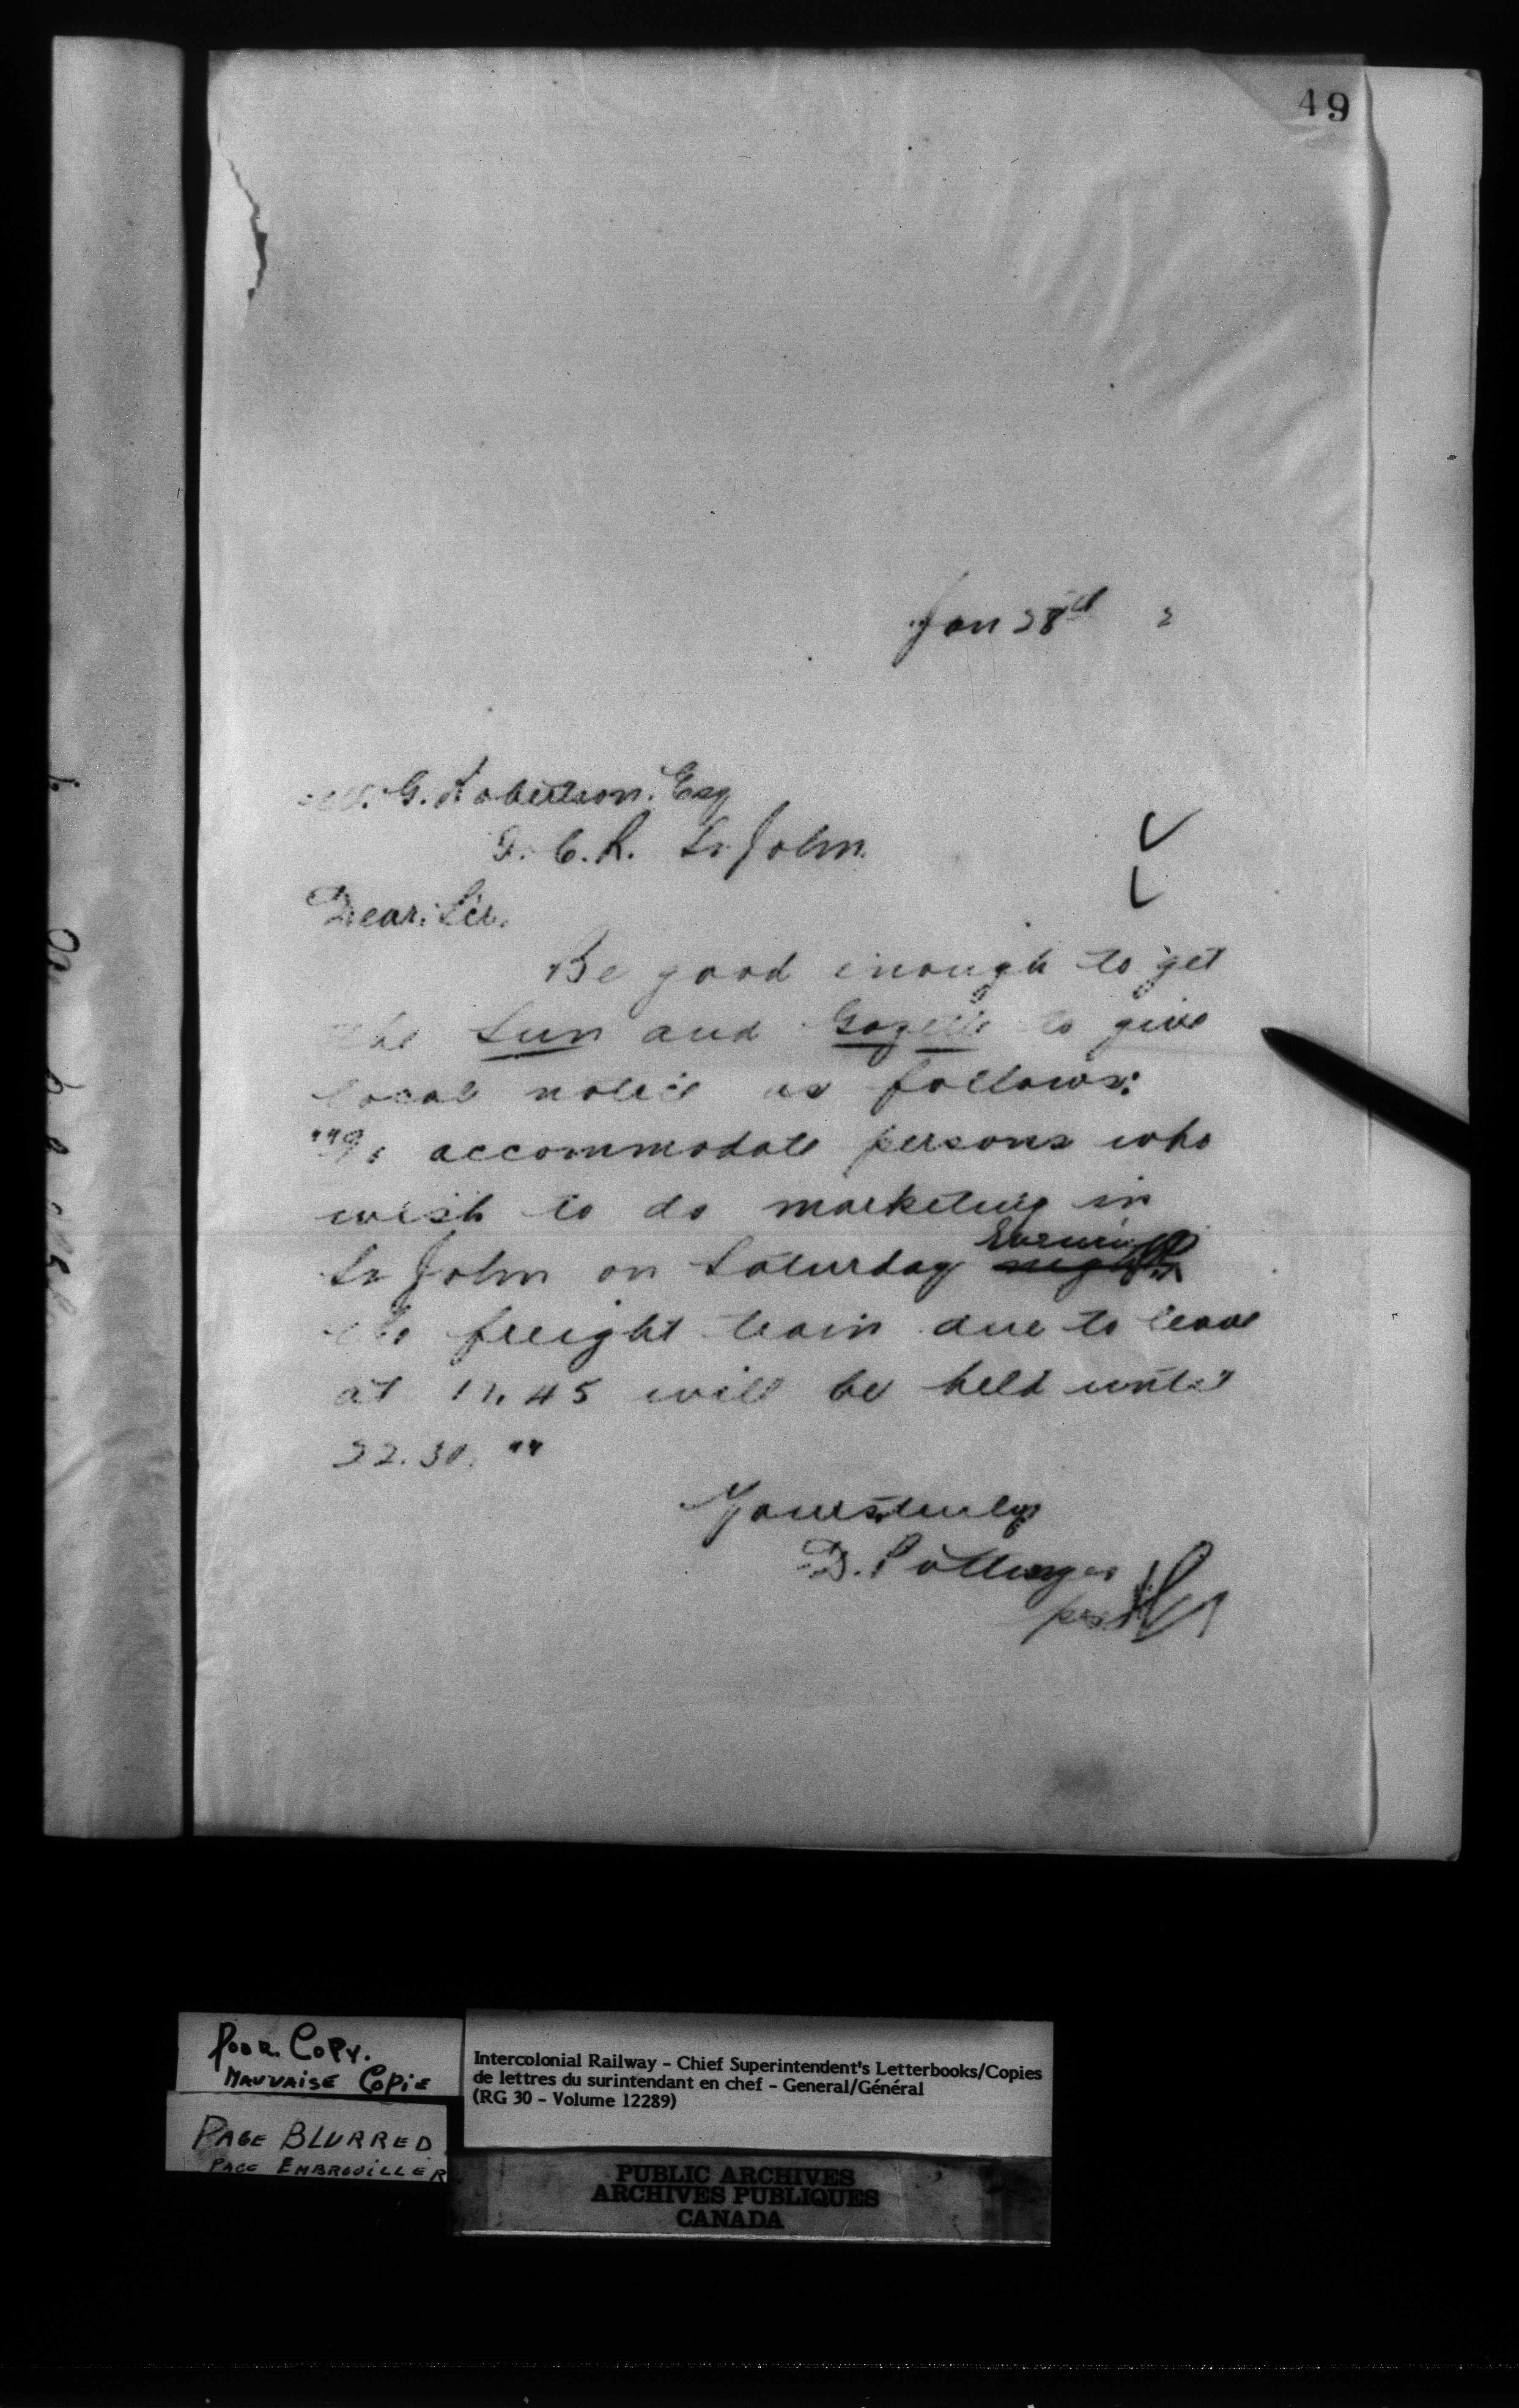 49
Jan 28th 2
W. G. Robertson. Esq
I. C. R. St John.
Dear Sir.
Be good enough to get
the Sun and Gazette to give
local notice as follows:
"To accommodate persons who
wish to do marketing in
St John on Saturday Evening night
the freight train due to leave
at 17.45 will be held until
22.30."
Yours truly
D. Pottinger
per
Poor Copy.
Mauvaise Copie
Page Blurred
Page Embrouiller
Intercolonial Railway - Chief Superintendent's Letterbooks/Copies
de lettres du surintendant en chef - General/Général
(RG 30 - Volume 12289)
PUBLIC ARCHIVES
ARCHIVES PUBLIQUES
CANADA